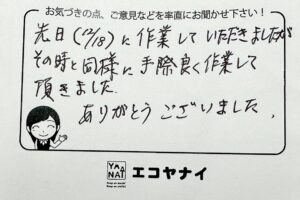 お気づきの点、ご意見などを率直にお聞かせ下さい!
先日(12/18)に作業していただきましたが
その時と同様に手際良く作業して
頂きました。
ありがとうございました。
YANAI
エコヤナイ